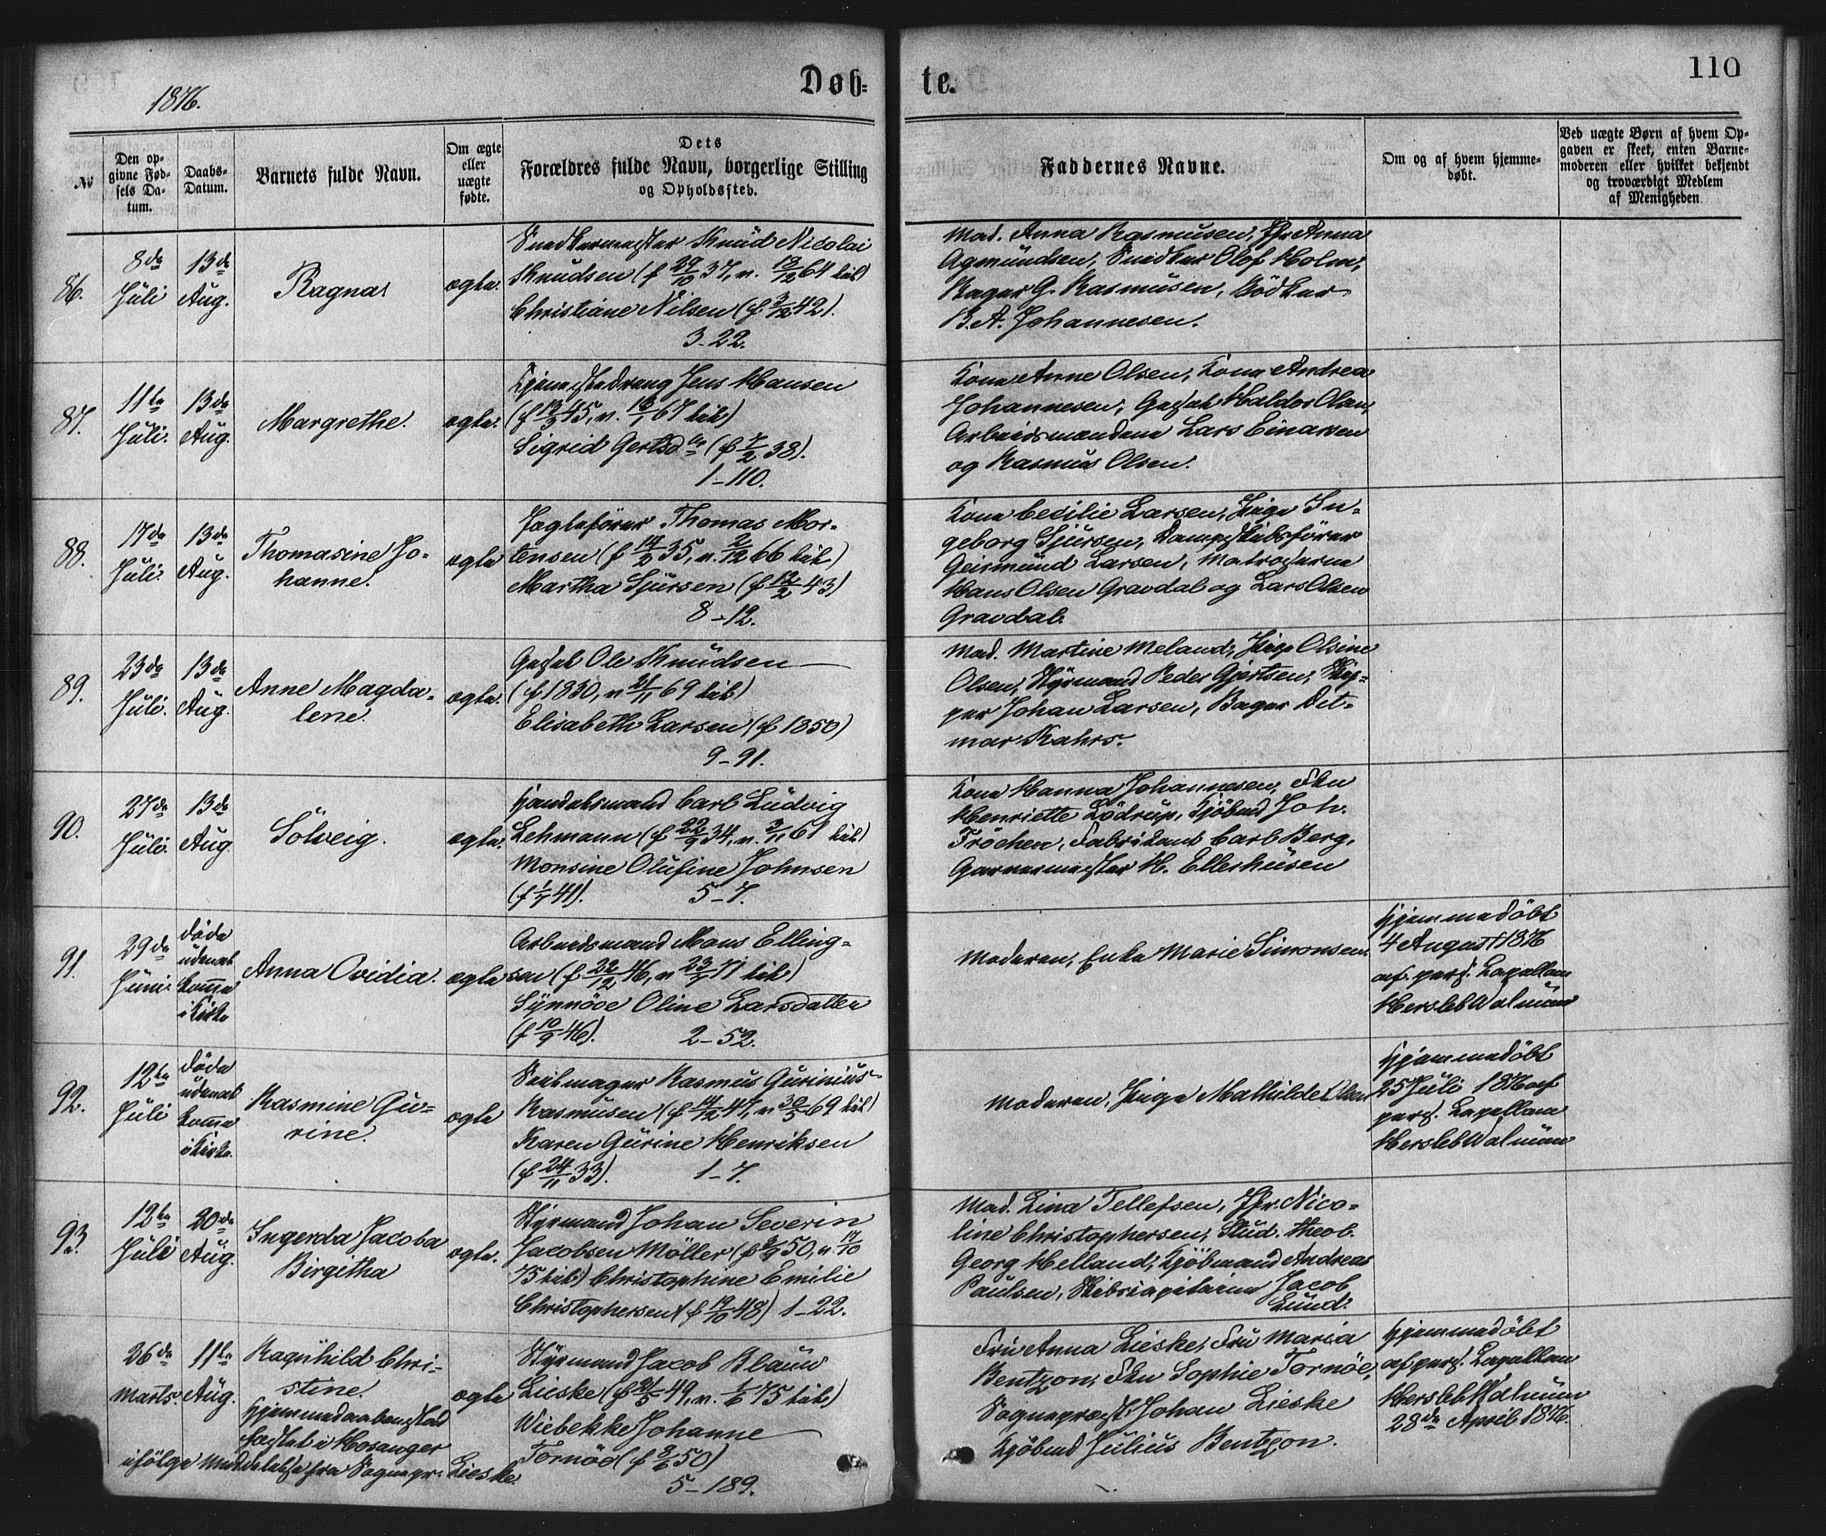 1876.
Døb-
te.
110
№
Den op-
givne Fød-
sels Da-
tum.
Daabs-
Datum.
Barnets fulde Navn.
Om ægte
eller
uægte
fødte.
Dets
Forældres fulde Navn, borgerlige Stilling
og Opholdssted.
Faddernes Navne.
Om og af hvem hjemme-
døbt.
Ved uægte Børn af hvem Op-
gaven er skeet, enten Barne-
moderen eller hvilket bekjendt
og troværdigt Medlem
af Menigheden
86.
8de
Juli
13de
Aug.
Ragna
ægte.
Snedkermester Knud Nicolai
Knudsen (f 29/10 37, v. 13/12 64 til)
Christiane Nilsen (f 3/12 42).
3-22.
Mad. Anna Rasmusen, Jfr Anna
Agmundsen, Snedker Olof Holm,
Bager G. Rasmusen, Bødker
B. A. Johannesen.
87.
11te
Juli.
13de
Aug.
Margrethe.
ægte.
Tjenestedreng Jens Hansen
(f 13/3 45, v. 16/1 67 til)
Sigrid Gertsdtr (f 7/2 38).
1-110.
Kone Anne Olsen, Kone Andrea
Johannesen, Gesel Haldor Olsen,
Arbeidsmændene Lars Einarsen
og Rasmus Olsen.
88.
17de
Juli.
13de
Aug.
Thomasine Jo-
hanne.
ægte
Jagtefører Thomas Mor-
tensen (f 14/2 35, v. 2/12 66 til)
Martha Sjursen (f 12/2 43)
8-12.
Kone Cecilie Larsen, Pige In-
geborg Sjursen, Dampskibsfører
Geirmund Larsen, Matroserne
Hans Olsen Gravdal og Lars Olsen
Gravdal.
89.
23de
Juli.
13de
Aug.
Anne Magda-
lene.
ægte.
Gesel Ole Knudsen
(f 1830, v 21/11 69 til)
Elisabeth Larsen (f 1850)
9-91.
Mad. Martine Meland, Pige Olsine
Olsen, Styrmand Peder Gjertsen, Skip-
per Johan Larsen, Bager Dit-
mar Kahrs.
90.
27de
Juli.
13de
Aug.
Solveig.
ægte.
Handelsmand Carl Ludvig
Lehmann (f 22/9 34, v. 3/11 61 til)
Monsine Olufine Johnsen
(f 1/7 41). 5-7.
Kone Hanna Johannesen, Frk
Henriette Lödrup, Kjöbmd Joh.
Fröchen, Fabrikant Carl Berg,
Garvermester H. Ellerhusen
91.
29de
Juni.
døde
udenat
komme
i Kirke
Anna Ovidia.
ægte
Arbeidsmand Mons Elling-
sen (f 22/12 46, v 23/7 71 til)
Synnöve Oline Larsdatter
(f 10/9 46). 2-52.
Moderen, Enke Marie Simonsen.
Hjemmedøbt
4 August 1876
af pers. Kapellan
Hersleb Walnum
92.
12te
Juli
døde
udenat
komme
i Kirke.
Rasmine Gu-
rine.
ægte
Seilmager Rasmus Gurinius
Rasmusen (f 14/12 47, v 30/5 69 til)
Karen Gurine Henriksen
(f 24/11 33). 1-7.
Moderen, Pige Mathilde Olsen
Hjemmedøbt
25 Juli 1876 af
pers. Kapellan
Hersleb Walnum
93.
12te
Juli
20de
Aug.
Ingerda Jacoba
Birgitha
ægte.
Styrmand Johan Severin
Jacobsen Möller (f 3/9 50, v 17/10
75 til) Christophine Emilie
Christophersen (f 19/10 48) 1-22.
Mad. Lina Tellefsen, Jfr. Nico-
line Christophersen, Stud. theol.
Georg Helland, Kjöbmand Andreas
Paulsen, Skibskapitain Jacob
Lund.
26de
Marts.
11te
Aug.
Ragnhild Chri-
stine.
Hjemmedaaben stad-
fæstet i Hosanger
ifölge Meddelelse fra Sognepr. Lieske.
ægte
Styrmand Jacob Blauw
Lieske (f 21/5 49, v. 1/6 75 til)
Wiebekke Johanne
Tornöe (f 8/6 50)
5-189.
Fru Anna Lieske, Fru Maria
Bentzon, Frk Sophie Tornöe,
Sognepræst Johan Lieske
Kjöbmd Julius Bentzon.
Hjemmedøbt
af pers. Kapellan
Hersleb Walnum
28de April 1876.